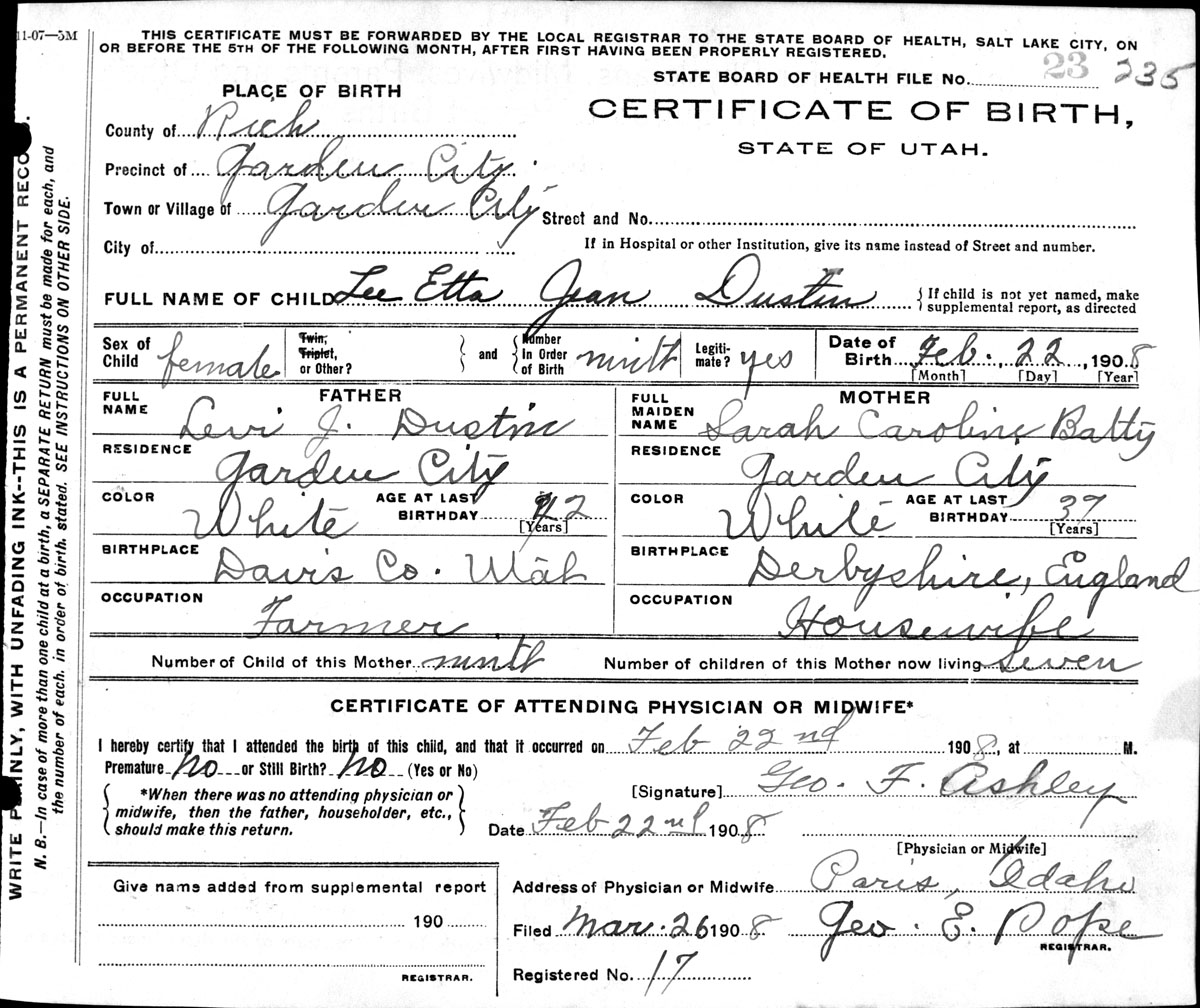 11-07—5M
THIS CERTIFICATE MUST BE FORWARDED BY THE LOCAL REGISTRAR TO THE STATE BOARD OF HEALTH, SALT LAKE CITY, ON
OR BEFORE THE 5TH OF THE FOLLOWING MONTH, AFTER FIRST HAVING BEEN PROPERLY REGISTERED.
STATE BOARD OF HEALTH FILE No. 23 235
PLACE OF BIRTH
CERTIFICATE OF BIRTH,
STATE OF UTAH.
County of Rich
Precinct of Garden City.
Town or Village of Garden City Street and No.
City of
If in Hospital or other Institution, give its name instead of Street and number.
FULL NAME OF CHILD Lee Etta Jean Dustin { If child is not yet named, make supplemental report, as directed
Sex of Child female Twin, Triplet, or Other? } and { Number In Order of Birth ninth Legiti-mate? yes Date of Birth Feb. 22, 1908
[Month] [Day] [Year]
FATHER
FULL NAME Levi J. Dustin
RESIDENCE Garden City
COLOR White AGE AT LAST BIRTHDAY 42 [Years]
BIRTHPLACE Davis Co. Utah
OCCUPATION Farmer
MOTHER
FULL MAIDEN NAME Sarah Caroline Batty
RESIDENCE Garden City
COLOR White AGE AT LAST BIRTHDAY 37 [Years]
BIRTHPLACE Derbyshire, England
OCCUPATION Housewife
Number of Child of this Mother ninth Number of children of this Mother now living Seven
CERTIFICATE OF ATTENDING PHYSICIAN OR MIDWIFE*
I hereby certify that I attended the birth of this child, and that it occurred on Feb 22nd 1908, at M.
Premature No or Still Birth? No (Yes or No)
{ *When there was no attending physician or
midwife, then the father, householder, etc.,
should make this return. }
[Signature] Geo. F. Ashley
Date Feb 22nd 1908
[Physician or Midwife]
Give name added from supplemental report
190
REGISTRAR.
Address of Physician or Midwife Paris, Idaho
Filed Mar. 26 1908 Geo. E. Pope
REGISTRAR.
Registered No. 17
WRITE PLAINLY, WITH UNFADING INK--THIS IS A PERMANENT RECO
N. B.—In case of more than one child at a birth, a SEPARATE RETURN must be made for each, and
the number of each, in order of birth, stated. SEE INSTRUCTIONS ON OTHER SIDE.